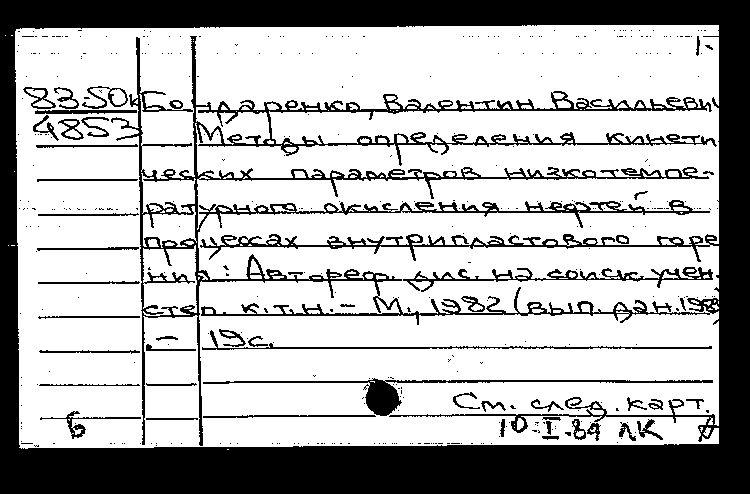 1.
83-50к Бондаренко, Валентин Васильеви
4853 Методы определения кинети
ческих параметров низкотемпе-
ратурного окисления нефтей в
процессах внутрипластового горе
ния: Автореф. дис. на соиск. учен.
степ. к.т.н. – М., 1982 (вып. дан. 1983)
. – 19 с.
См. след. карт.
Б 10.I.84 ЛК